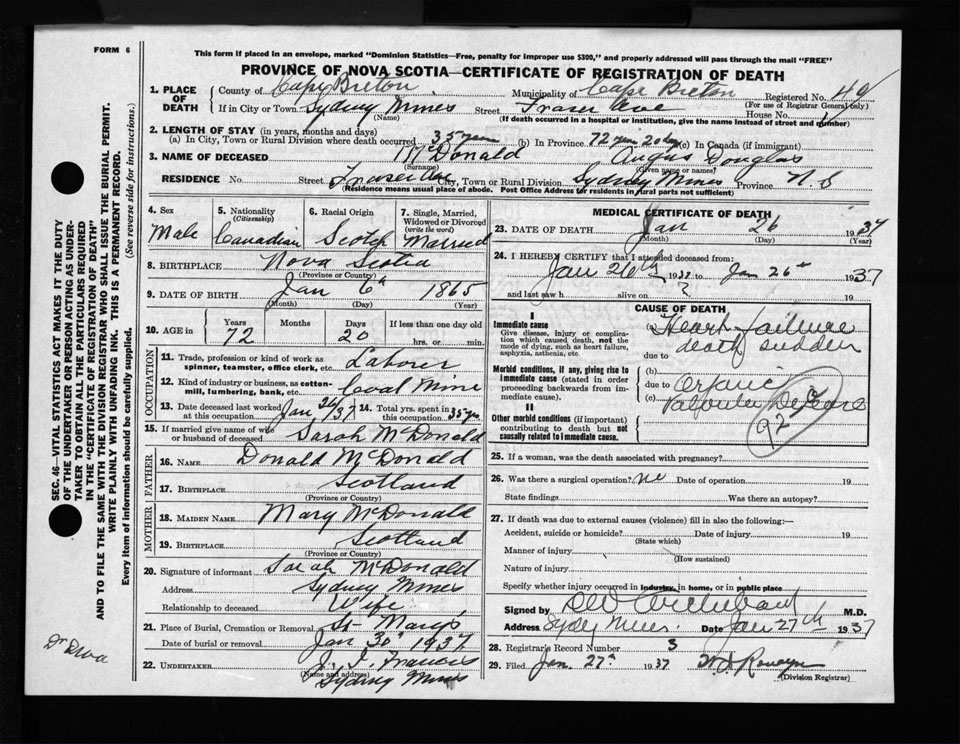 FORM 6
This form if placed in an envelope, marked "Dominion Statistics—Free, penalty for improper use $300," and properly addressed will pass through the mail "FREE"
PROVINCE OF NOVA SCOTIA—CERTIFICATE OF REGISTRATION OF DEATH
1. PLACE OF DEATH
County of Cape Breton Municipality of Cape Breton Registered No.
(For use of Registrar General only)
If in City or Town Sydney Mines Street Fraser Ave House No.
(Name)
(If death occurred in a hospital or institution, give the name instead of street and number)
2. LENGTH OF STAY (in years, months and days)
(a) In City, Town or Rural Division where death occurred 35 years (b) In Province 72 yrs 20 dys (c) In Canada (if immigrant)
3. NAME OF DECEASED McDonald Angus Douglas
(Surname) (Given name or names)
RESIDENCE No. Street Fraser Ave City, Town or Rural Division Sydney Mines Province N. S
(Residence means usual place of abode. Post Office Address for residents in rural parts not sufficient)
4. Sex
Male
5. Nationality
(Citizenship)
Canadian
6. Racial Origin
Scotch
7. Single, Married, Widowed or Divorced
(write the word)
Married
8. BIRTHPLACE Nova Scotia
(Province or Country)
9. DATE OF BIRTH Jan 6th 1865
(Month) (Day) (Year)
10. AGE in
Years 72
Months
Days 20
If less than one day old
hrs. or min.
OCCUPATION
11. Trade, profession or kind of work as spinner, teamster, office clerk, etc. Laborer
12. Kind of industry or business, as cotton-mill, lumbering, bank, etc. Coal Mine
13. Date deceased last worked at this occupation Jan 26/37
14. Total yrs. spent in this occupation 35 yrs.
15. If married give name of wife or husband of deceased Sarah McDonald
FATHER
16. NAME Donald McDonald
17. BIRTHPLACE Scotland
(Province or Country)
MOTHER
18. MAIDEN NAME Mary McDonald
19. BIRTHPLACE Scotland
(Province or Country)
20. Signature of informant Sarah McDonald
Address Sydney Mines
Relationship to deceased Wife
21. Place of Burial, Cremation or Removal St. Marys
Date of burial or removal Jan 30' 1937
22. UNDERTAKER Francis
(Name and address)
Sydney Mines
MEDICAL CERTIFICATE OF DEATH
23. DATE OF DEATH Jan 26 1937
(Month) (Day) (Year)
24. I HEREBY CERTIFY that I attended deceased from:
Jan 26th 1937 to Jan 26th 1937
and last saw h alive on ? 19
CAUSE OF DEATH
I
Immediate cause
Give disease, injury or complication which caused death, not the mode of dying, such as heart failure, asphyxia, asthenia, etc.
Heart failure
death sudden
due to
Morbid conditions, if any, giving rise to immediate cause (stated in order proceeding backwards from immediate cause).
(b)
due to Organic
(c) Valvular Disease
92
II
Other morbid conditions (if important) contributing to death but not causally related to immediate cause.
25. If a woman, was the death associated with pregnancy?
26. Was there a surgical operation? No Date of operation 19
State findings Was there an autopsy?
27. If death was due to external causes (violence) fill in also the following:—
Accident, suicide or homicide? Date of injury 19
(State which)
Manner of injury
(How sustained)
Nature of injury
Specify whether injury occurred in industry, in home, or in public place
Signed by Archibald M.D.
Address Sydney Mines Date Jan 27th 1937
28. Registrar's Record Number 3
29. Filed Jan. 27th 1937
(Division Registrar)
SEC. 46—VITAL STATISTICS ACT MAKES IT THE DUTY
OF THE UNDERTAKER OR PERSON ACTING AS UNDERTAKER TO OBTAIN ALL THE PARTICULARS REQUIRED
IN THE "CERTIFICATE OF REGISTRATION OF DEATH"
AND TO FILE THE SAME WITH THE DIVISION REGISTRAR WHO SHALL ISSUE THE BURIAL PERMIT.
WRITE PLAINLY WITH UNFADING INK. THIS IS A PERMANENT RECORD.
Every item of information should be carefully supplied. (See reverse side for instructions.)